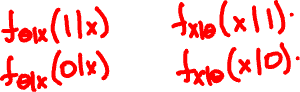 fΘ|X(1|x) fX|Θ(x|1).
fΘ|X(0|x) fX|Θ(x|0).